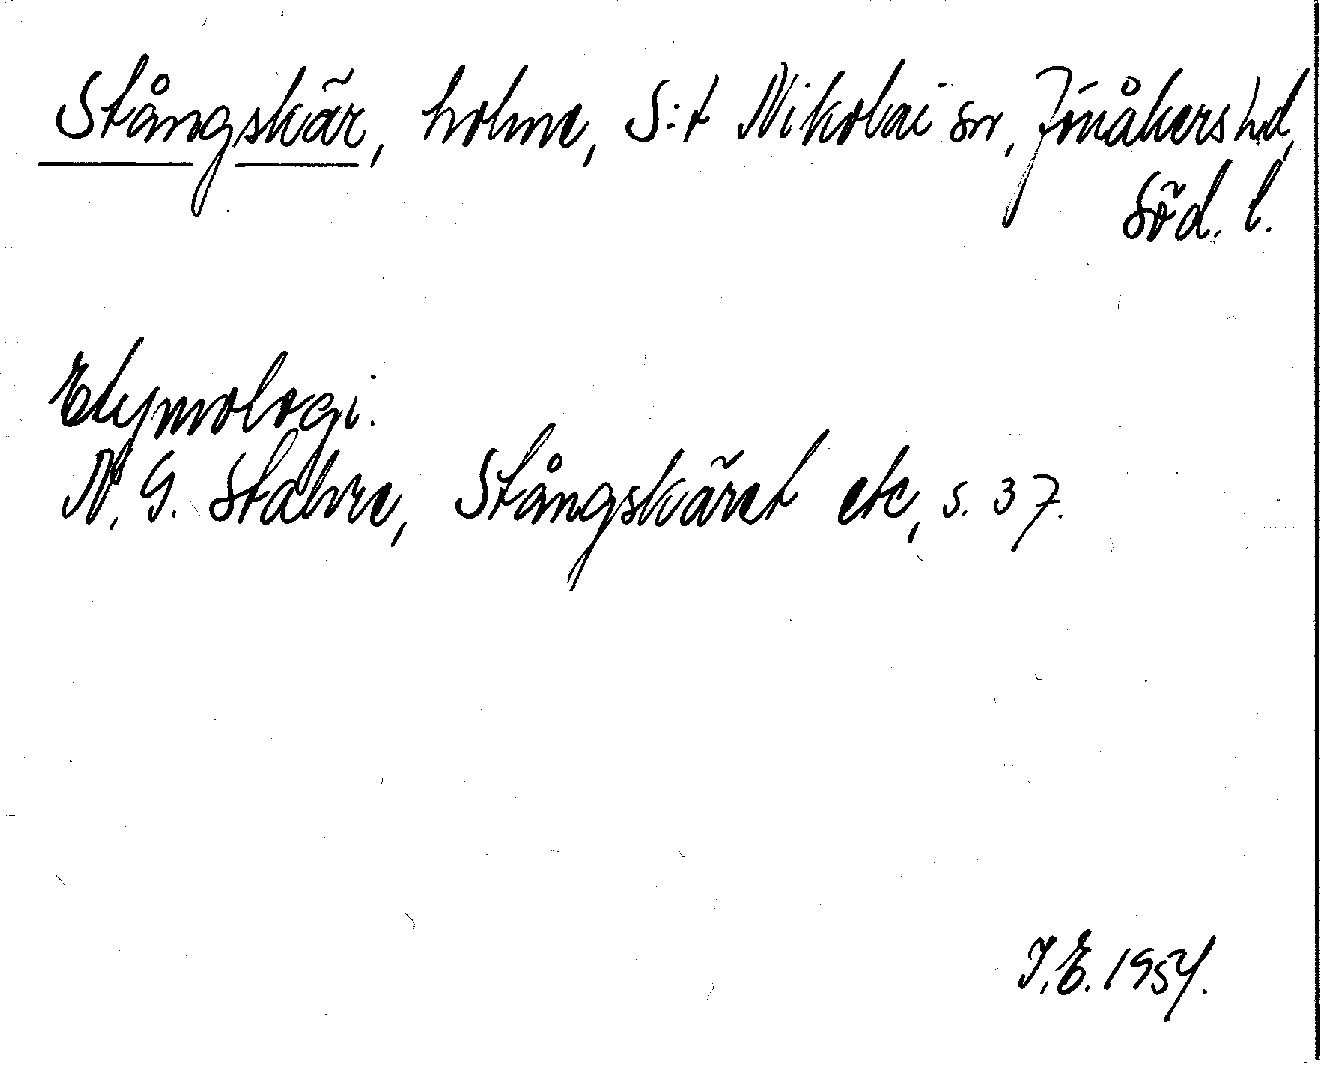 Stångskär, holme, S:t Nikolai sn, Jönåkers hd,
Söd. l.
Etymologi.
N. G. Stahre, Stångskäret etc, s. 37.
I. E. 1954.